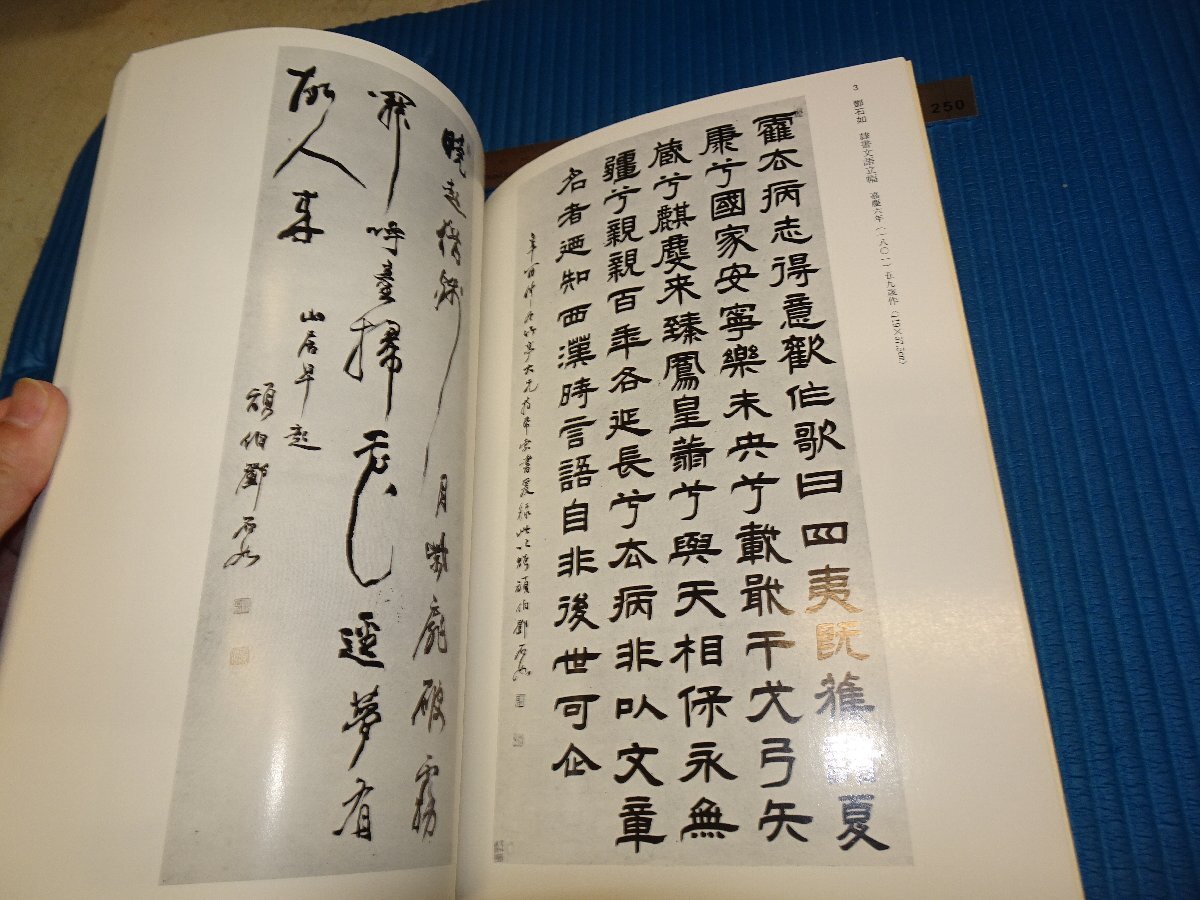 3 鄧石如 隷書文語立幅 嘉慶六年(一八〇一)五九歳作
霍厺病志得意歡作歌曰四夷既護諸夏
康兮國家安寧樂未央兮載戢干戈弓矢
蔵兮麒麐来臻鳳皇兮與天相保永無
疆兮親親百年各延長兮厺病非以文章
名者迺知西漢時言語自非後世可企
辛酉仲冬竹亭大兄索書爰録此以贈頑伯鄧石如
曉起猶殘月崖破霧
呼童掃花逕夢有
故人来
山居早起
頑伯鄧石如
250